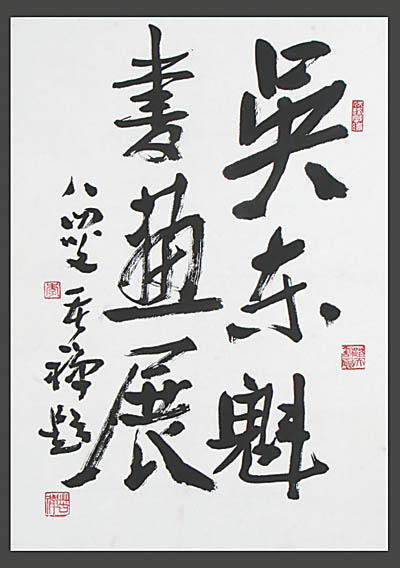 吳东魁
書畫展
八四叟苦禅题